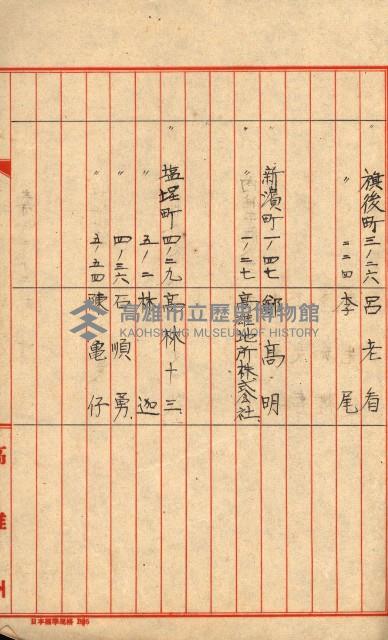 〃 旗後町三ノ二六 呂老看
〃 二二四 李尾
〃 新濱町一ノ四七 鄭高明
〃 〃 一ノ二七 高雄地所株式会社
〃 塩埕町四ノ二九 高林十三
〃 〃 五ノ二 林迦
〃 〃 四ノ三六 石順勇
〃 〃 五ノ五四 陳亀仔
高雄州
日本標準規格 B5
高雄市立歷史博物館
KAOHSIUNG MUSEUM OF HISTORY